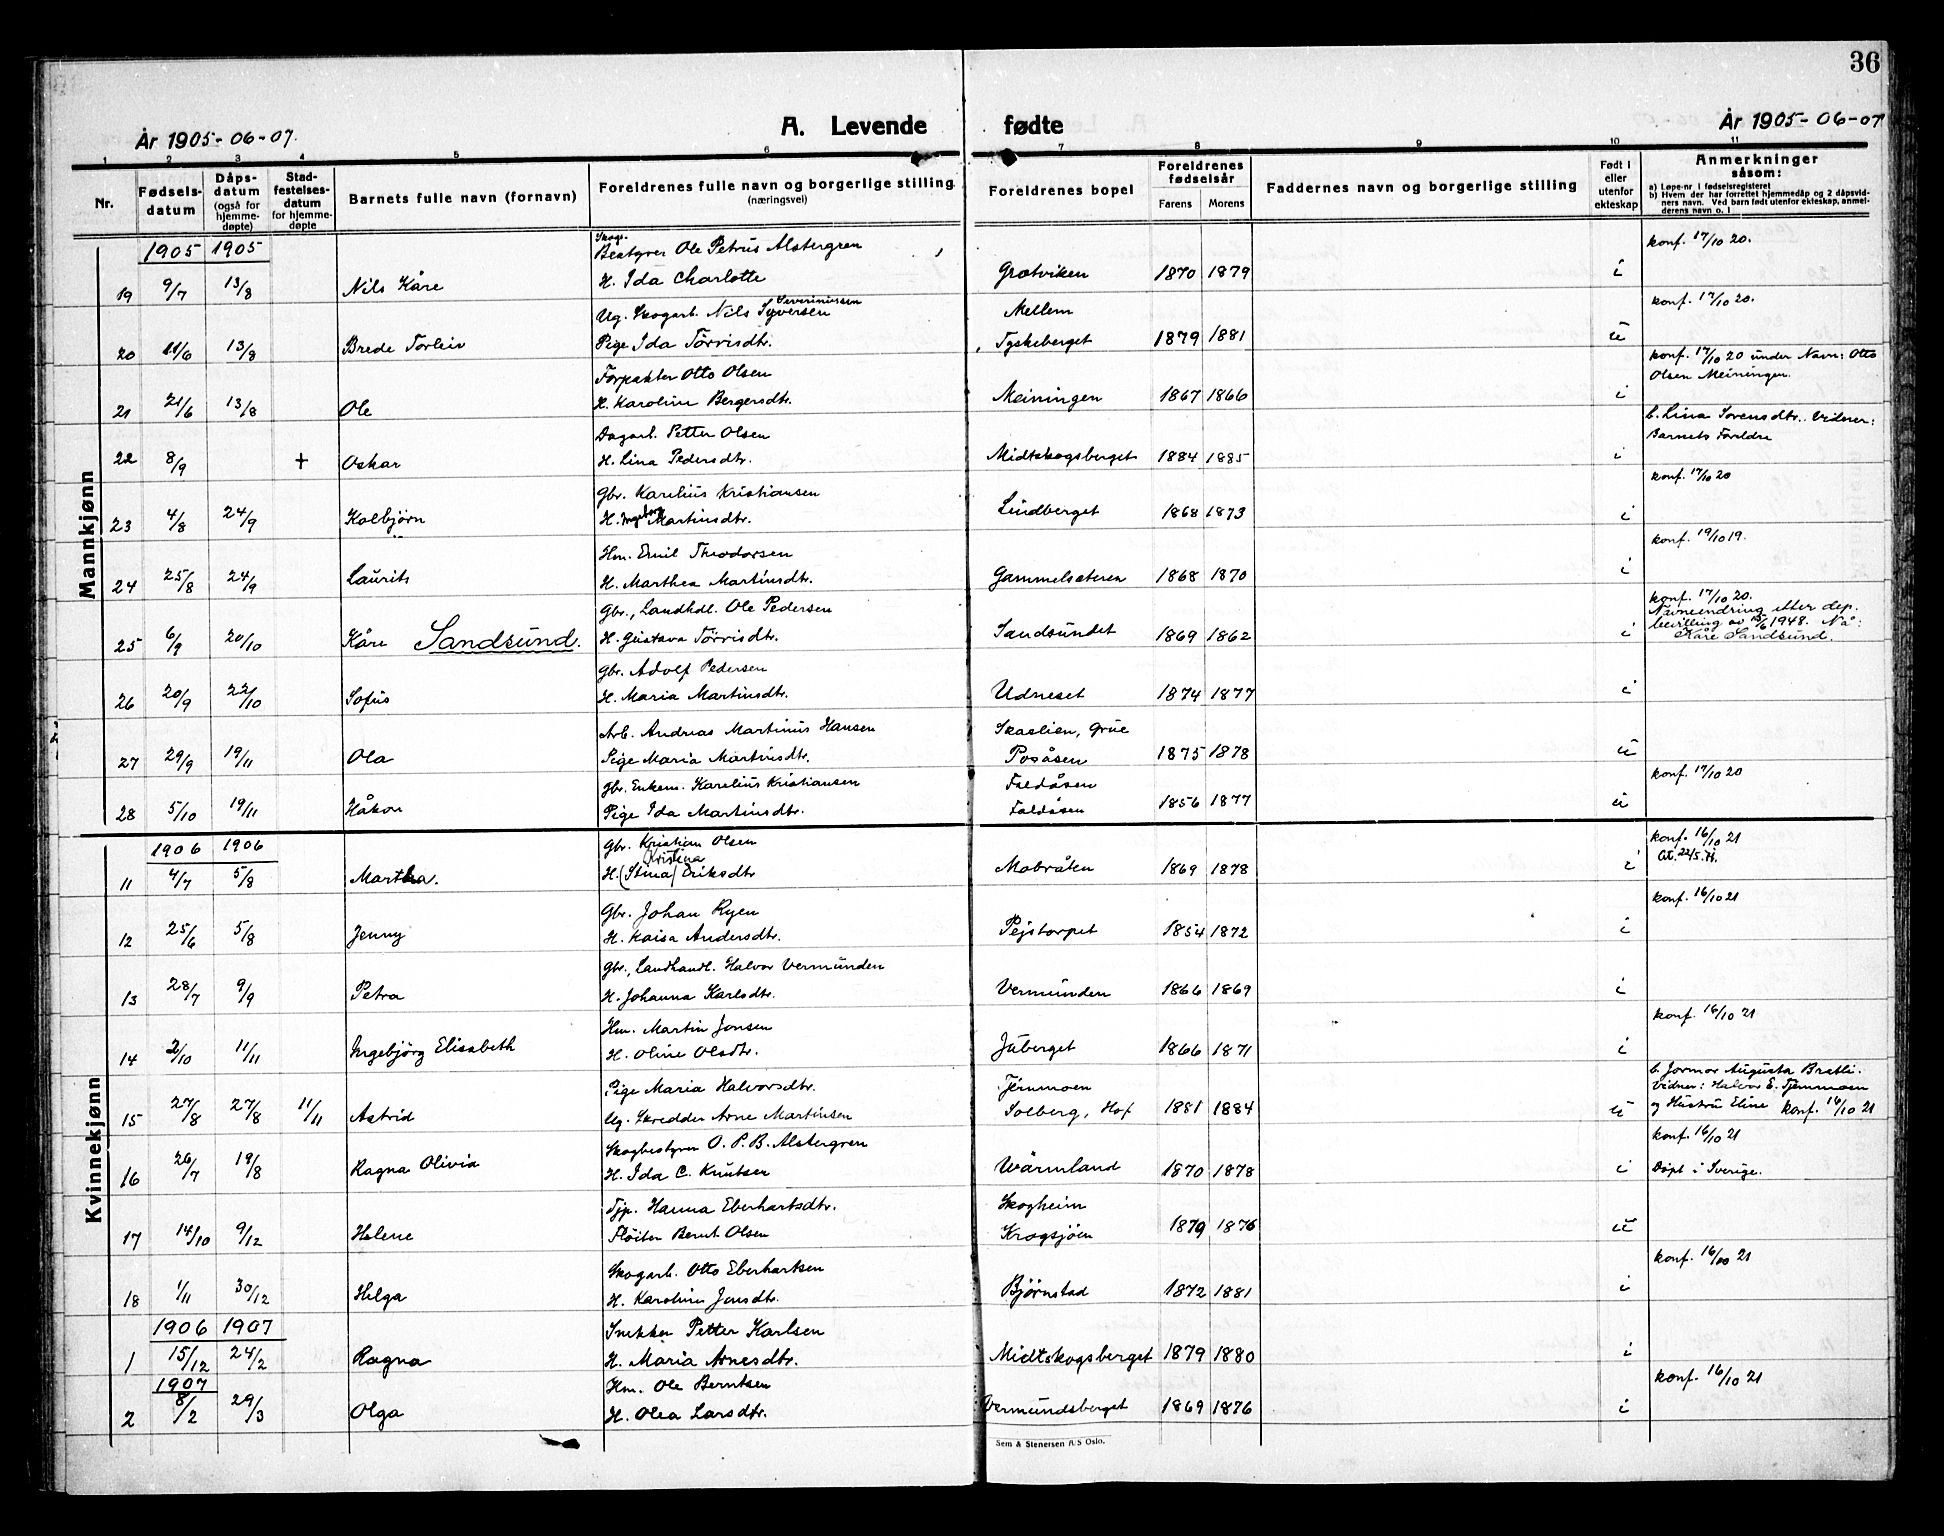 36
År 1905-06-07.
A. Levende født​e
År 1905-06-07
1 2 3 4 5 6 7 8 9 10 11
Nr.
Fødsels-
datum
Dåps-
datum
(også for
hjemme-
døpte)
Stad-
festelses-
datum
for hjemme-
døpte
Barnets fulle navn (fornavn)
Foreldrenes fulle navn og borgerlige stilling
(næringsvei)
Foreldrenes bopel
Foreldrenes
fødselsår
Farens Morens
Faddernes navn og borgerlige stilling
Født i
eller
utenfor
ekteskap
Anmerkninger
såsom:
a) Løpe-nr i fødselsregisteret
b) Hvem der har forrettet hjemmedåp og 2 dåpsvid-
ners navn. Ved barn født utenfor ekteskap, anmel-
derens navn o. l
Mannkjønn
1905 1905
Skogs.
Bestyrer Ole Petrus Alstergren
konf. 17/10 20.
19 9/7 13/8 Nils Kåre H. Ida Charlotte Grøtviken 1870 1879 i
Severinussen
Ug. Skogarb. Nils Syversen Mellem konf. 17/10 20.
20 11/6 13/8 Brede Torleiv Pige Ida Törrisdtr. Tyskeberget 1879 1881 u
Forpakter Otto Olsen konf. 17/10 20 under Navn: Otto
Olsen Meiningen.
21 21/6 13/8 Ole H. Karoline Bergersdtr. Meiningen 1867 1866 i
Dagarb. Petter Olsen b. Lina Sorensdtr. Vidner:
Barnets Foreldre
22 8/9 + Oskar H. Lina Pedersdtr. Midtskogsberget 1884 1885 i
Gbr. Karelius Kristiansen konf. 17/10 20
23 4/8 24/9 Kolbjörn H. Ingeborg Martinsdtr. Lindberget 1868 1873 i
Hm. Emil Theodorsen konf. 19/10 19.
24 25/8 24/9 Laurits H. Marthea Martinsdtr. Gammelsæteren 1868 1870 i
Gbr., Landhdl. Ole Pedersen konf. 17/10 20.
Navneendring etter dep.
bevilling av 15/6 1948. Nå:
Kåre Sandsund.
25 6/9 20/10 Kåre Sandsund. H. Gustava Törrisdtr. Sandsundet 1869 1862 i
Gbr. Adolf Pedersen
26 20/9 22/10 Sofus H. Maria Martinsdtr. Udneset 1874 1877 i
Arb. Andreas Martinus Hansen Skaslien, Grue
27 29/9 19/11 Ola Pige Maria Martinsdtr. Posåsen 1875 1878 u
Gbr. Enkem. Karelius Kristiansen Faldåsen konf. 17/10 20
28 5/10 19/11 Håkon Pige Ida Martinsdtr. Faldåsen 1856 1877 u
Kvinnekjønn
1906 1906
Gbr. Kristian Olsen konf. 16/10 21
Kristina
At. 22/5. 71.
11 4/7 5/8 Martha. H. (Stina) Eriksdtr Mobråten 1869 1878 i
Gbr. Johan Ryen konf. 16/10 21
12 25/6 5/8 Jenny H. Kaisa Andersdtr. Pejstorpet 1854 1872 i
Gbr., Landhandl. Halvor Vermunden
13 28/7 9/9 Petra H. Johanna Karlsdtr. Vermunden 1866 1869 i
Hm. Martin Jonsen konf. 16/10 21
14 2/10 11/11 Ingebjörg Elisabeth H. Oline Olsdtr. Juberget 1866 1871 i
Pige Maria Halvorsdtr. Tjernmoen b. Jormor Augusta Bratli.
Vidner: Halvor E. Tjernmoen
og Hustru Eline konf. 16/10 21
15 27/8 27/8 11/11 Astrid Ug. Skredder Arne Martinsen Solberg, Hof 1881 1884 u
Skogbestyrer O. P. B. Alstergren konf. 16/10 21
16 26/7 19/8 Ragna Olivia H. Ida C. Knutsen Wärmland 1870 1878 i Döpt i Sverige.
Tjp. Hanna Eberhartsdtr. Skogheim
17 14/10 9/12 Helene Flöiter Bernt Olsen Krogsjöen 1879 1876 u
Skogarb. Otto Eberhartsen konf. 16/10 21
18 1/11 30/12 Helga H. Karoline Jonsdtr. Bjørnstad 1872 1881 i
1906 1907
Snekker Petter Karlsen
1 15/12 24/2 Ragna H. Maria Arnesdtr. Midtskogsberget 1879 1880 i
1907
Hm. Ole Berntsen konf. 16/10 21
2 8/2 29/3 Olga H. Olea Larsdtr. Vermundsberget 1869 1876 i
Sem & Stenersen A/S Oslo.